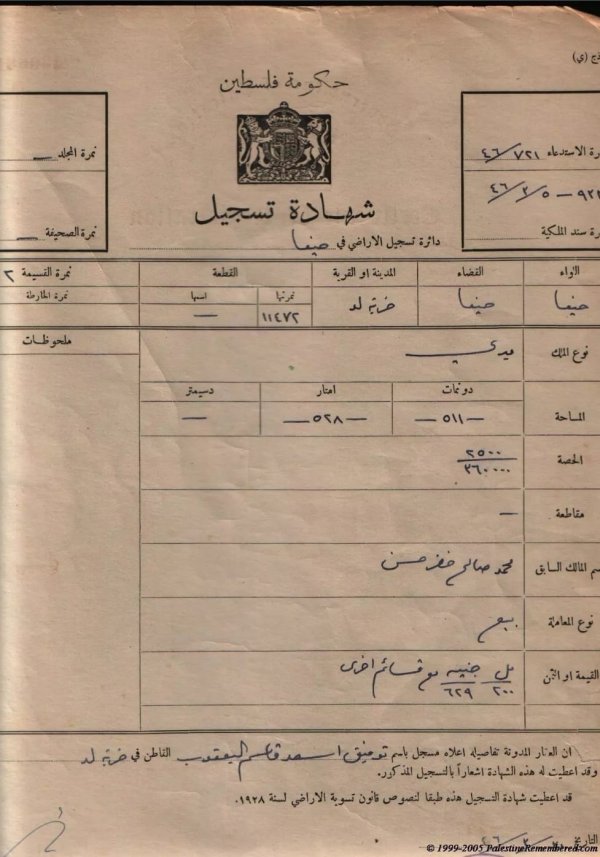 حكومة فلسطين
نمرة المجلد —
٤٦/٧٢١
شهادة تسجيل
نمرة الصحيفة —
رة سند الملكية
دائرة تسجيل الاراضي في حيفا
الاواء القضاء المدينة او القرية القطعة نمرة القسيمة ٢
حيفا حيفا خربة لد نمرتها اسمها نمرة الخارطة
١١٤٧٢ —
نوع الملك ميري ملحوظات
دونمات امتار دسيمتر
المساحة —٥١١— —٥٢٨— —
الحصة ٢٥٠٠
٣٦٠٠٠٠
مقاطعة —
سم المالك السابق محمد صالح خضر حسن
نوع المعاملة بيع
القيمة او الثمن مل جنيه مع قسائم اخرى
٢٠٠ ٦٢٩
ان العقار المدونة تفاصيله اعلاه مسجل باسم توفيق اسعد قاسم اليعقوب القاطن في خربة لد
وقد اعطيت له هذه الشهادة اشعاراً بالتسجيل المذكور.
قد اعطيت شهادة التسجيل هذه طبقا لنصوص قانون تسوية الاراضي لسنة ١٩٢٨.
التاريخ
© 1999-2005 PalestineRemembered.com